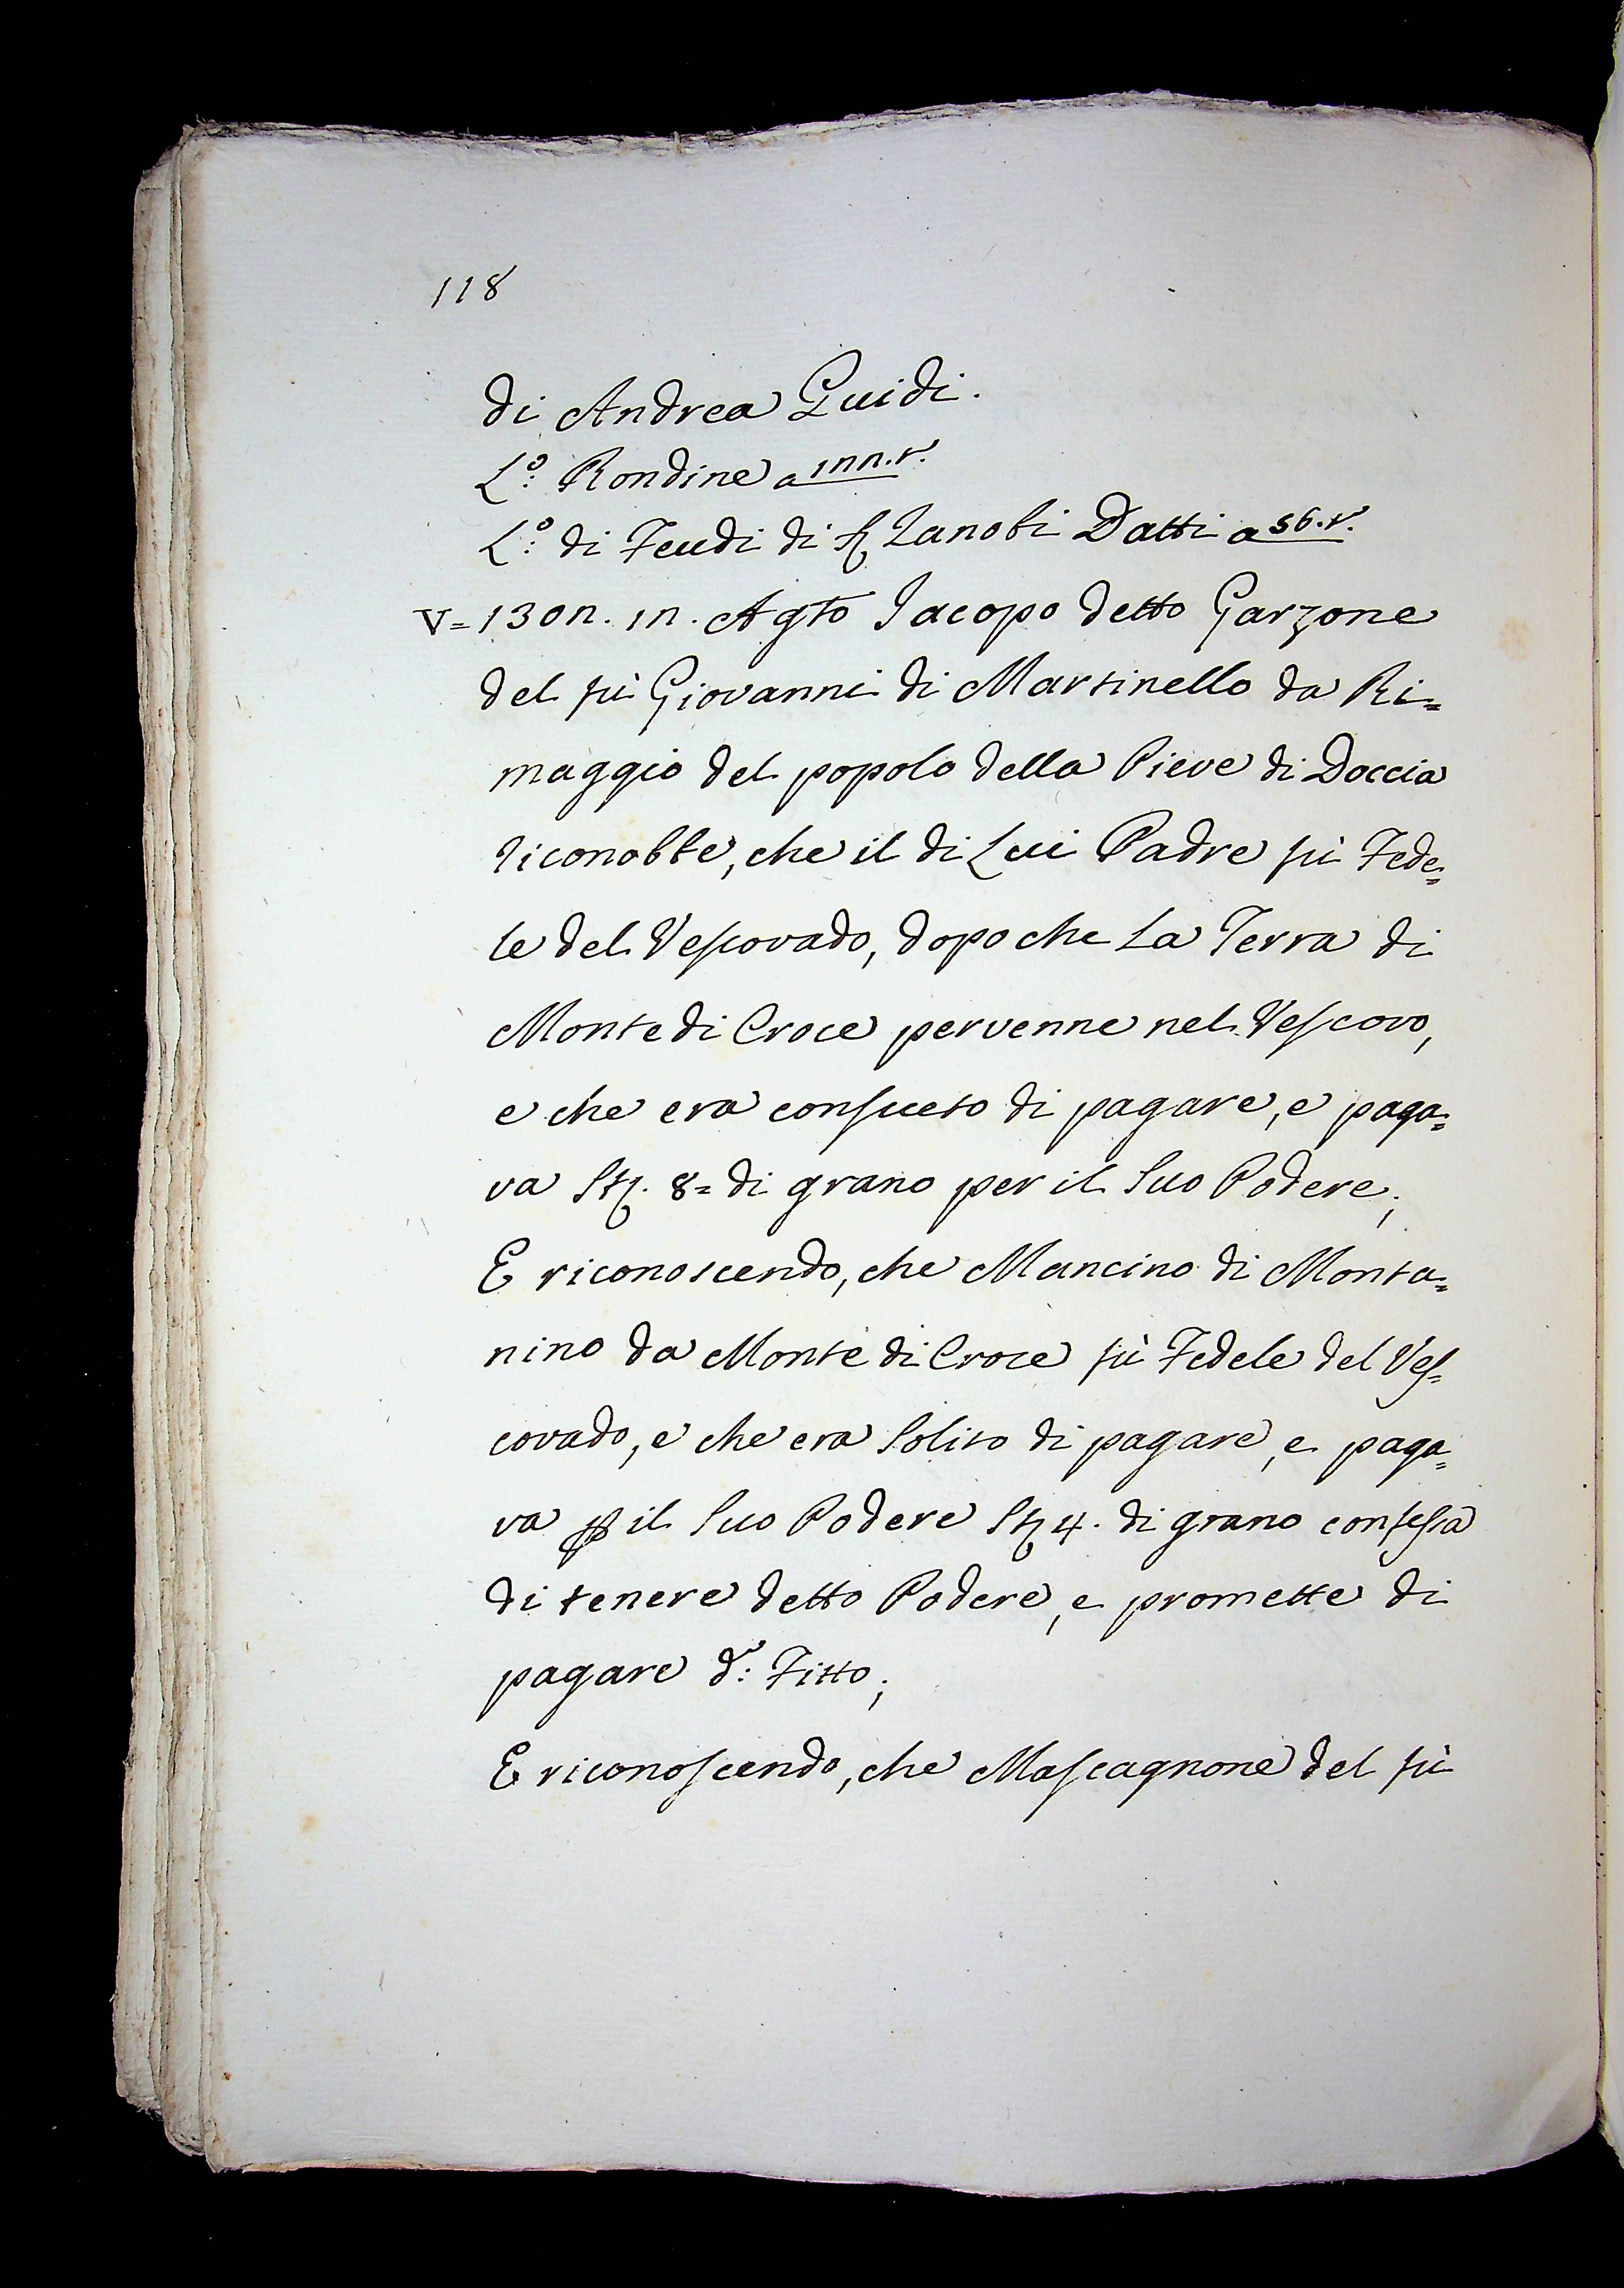 118
di Andrea Guidi.
L.º Rondine a 1nn.r.
L.º di Feudi di Sʳ Zanobi Datti a 56.r.
V= 130n. 1n. Agto Jacopo detto Garzone
del fù Giovanni di Martinello da Ri=
maggio del popolo della Pieve di Doccia
riconobbe, che il di Lui Padre fù Fede=
le del Vescovado, dopo che la Terra di
Monte di Croce pervenne nel Vescovo,
e che era consueto di pagare, e paga=
va Stʳ. 8= di grano per il Suo Podere;
E riconoscendo, che Mancino di Monta=
nino da Monte di Croce fù Fedele del Ves=
covado, e che era Solito di pagare, e paga=
va p il Suo Podere Stʳ 4. di grano confessa
di tenere detto Podere, e promette di
pagare d.º Fitto;
E riconoscendo, che Mascagnone del fù